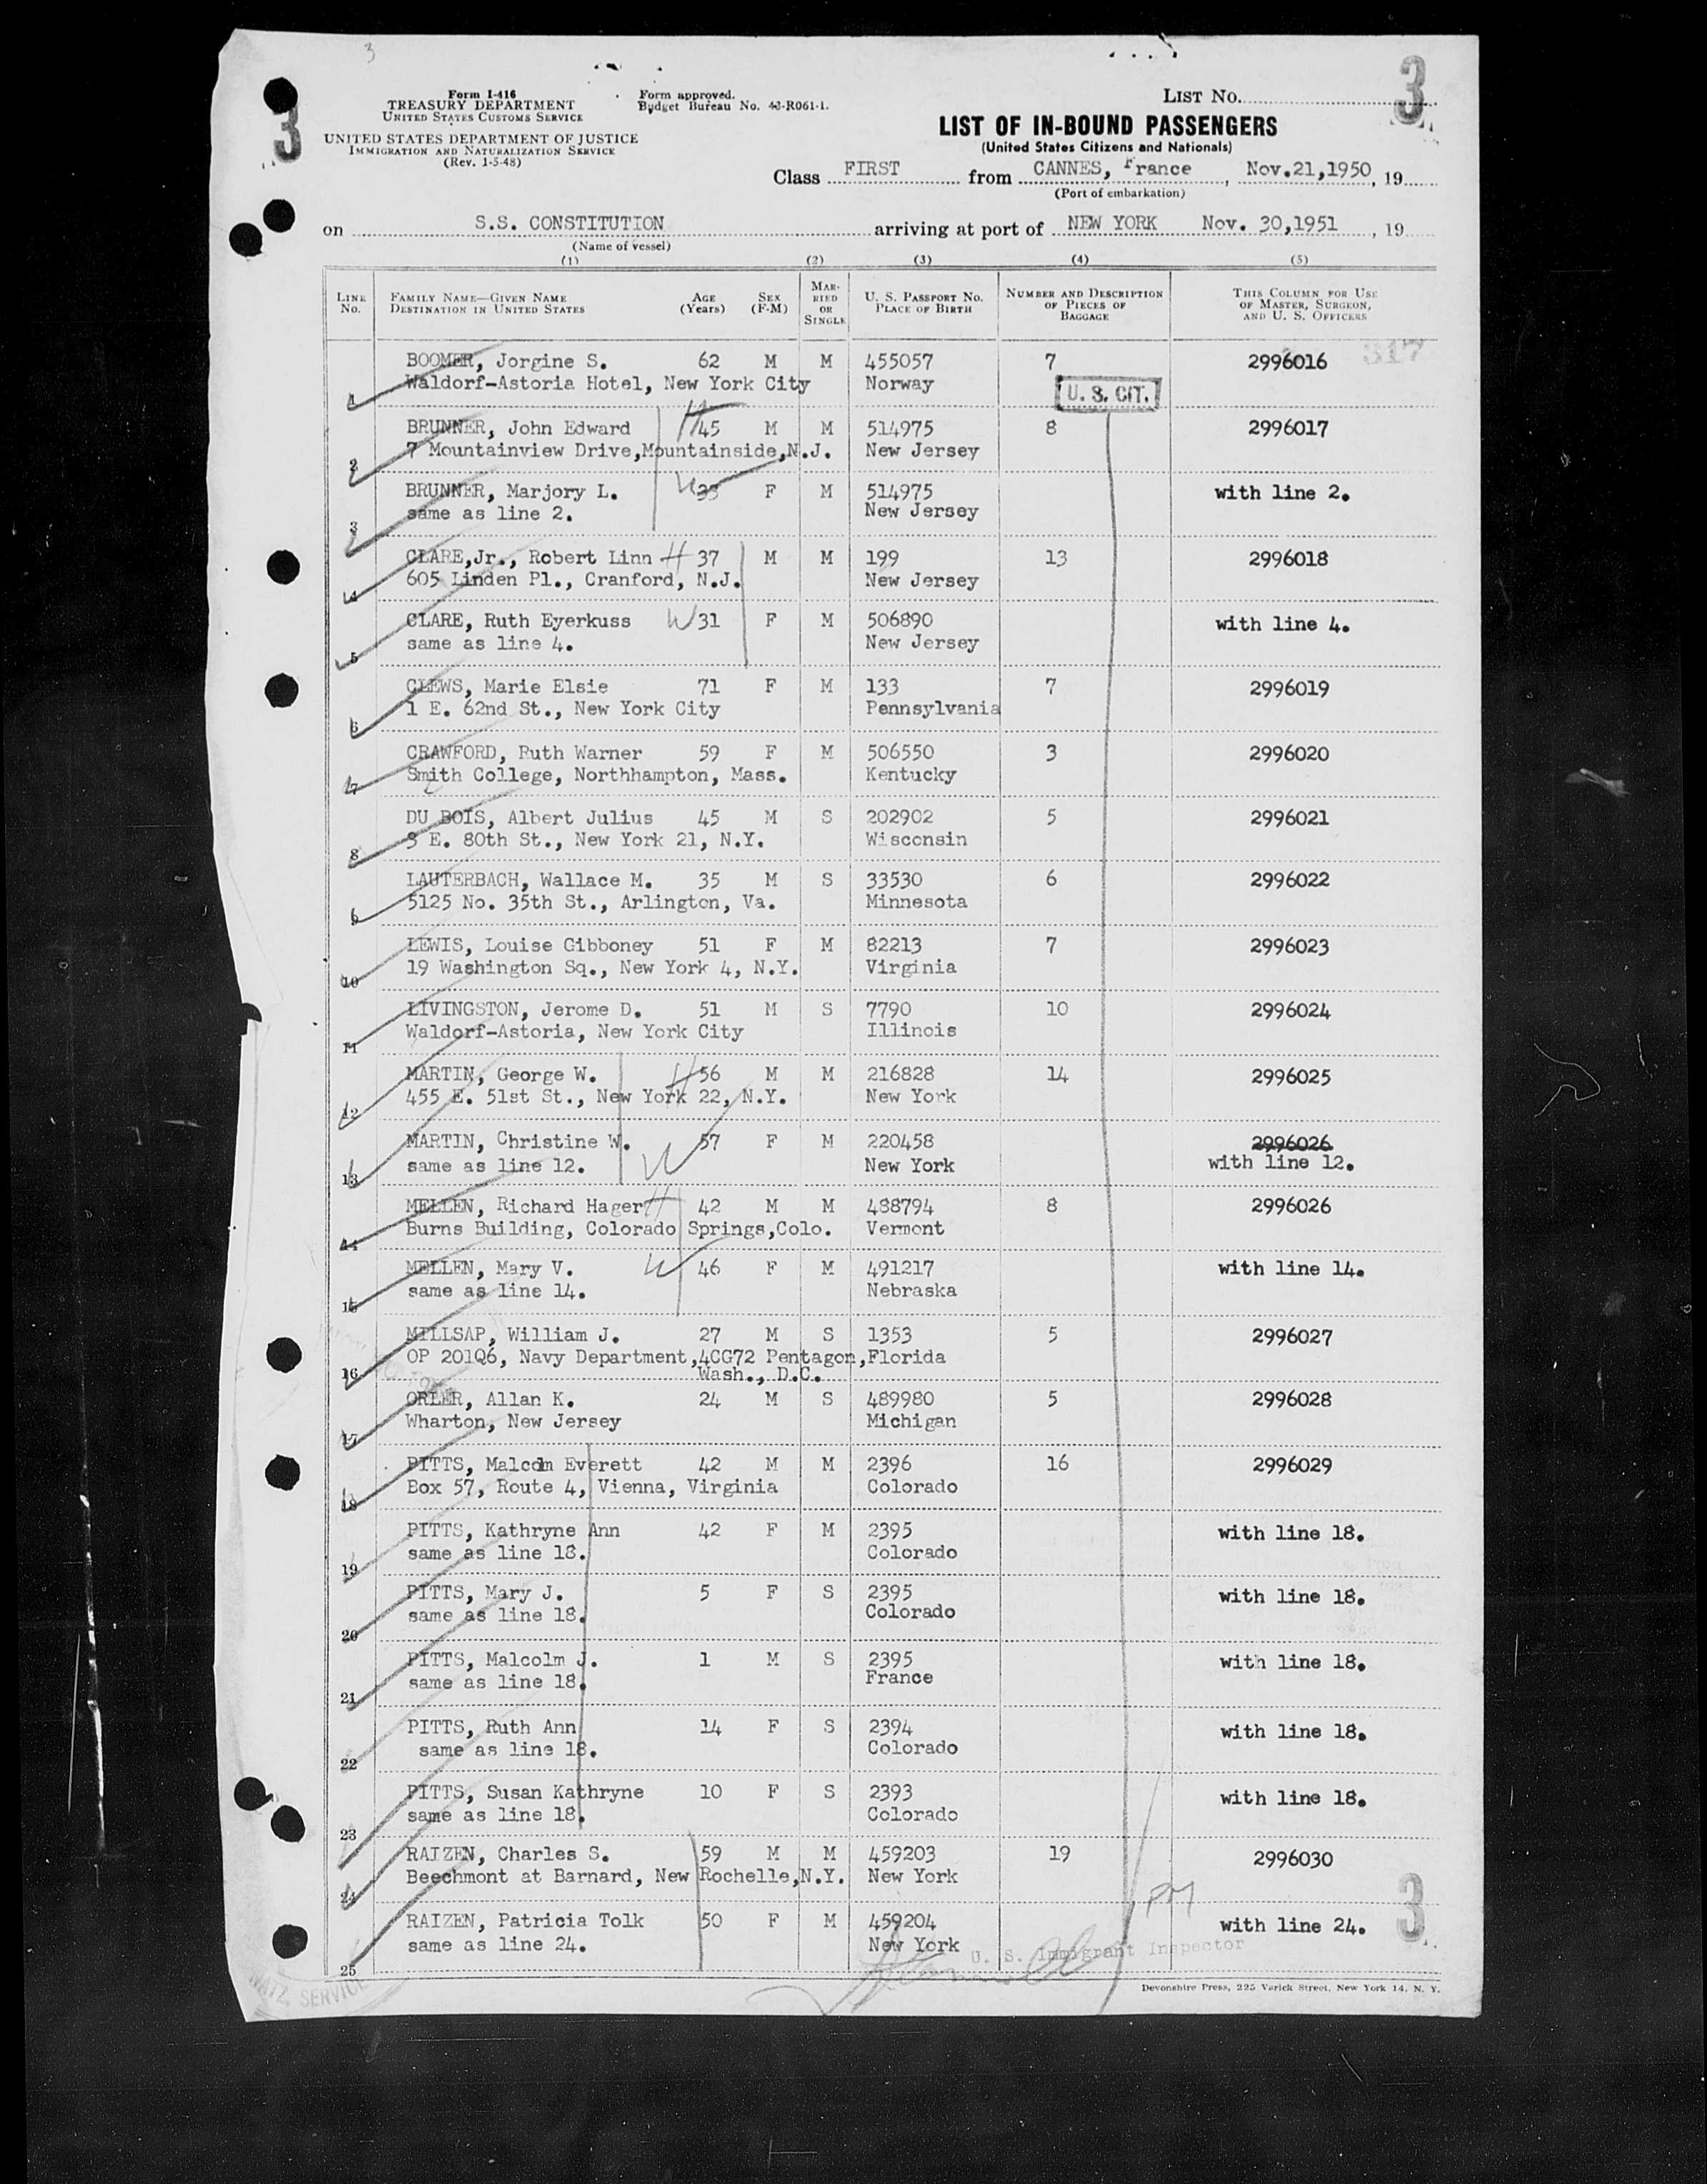 3
Form I-416
TREASURY DEPARTMENT
UNITED STATES CUSTOMS SERVICE
UNITED STATES DEPARTMENT OF JUSTICE
IMMIGRATION AND NATURALIZATION SERVICE
(Rev. 1-5-48)
Form approved.
Budget Bureau No. 43-R061-1.
LIST No.
3
3
LIST OF IN-BOUND PASSENGERS
(United States Citizens and Nationals)
Class FIRST from CANNES, France, Nov.21,1950, 19
(Port of embarkation)
on S.S. CONSTITUTION arriving at port of NEW YORK Nov. 30,1951, 19
(Name of vessel)
(1) (2) (3) (4) (5)
LINE No. FAMILY NAME—GIVEN NAME DESTINATION IN UNITED STATES AGE (Years) SEX (F-M) MARRIED OR SINGLE U. S. PASSPORT No. PLACE OF BIRTH NUMBER AND DESCRIPTION OF PIECES OF BAGGAGE THIS COLUMN FOR USE OF MASTER, SURGEON, AND U. S. OFFICERS
317
BOOMER, Jorgine S. 62 M M 455057 7 2996016
1 Waldorf-Astoria Hotel, New York City Norway U. S. CIT.
BRUNNER, John Edward H 45 M M 514975 8 2996017
2 7 Mountainview Drive,Mountainside,N.J. New Jersey
BRUNNER, Marjory L. W 33 F M 514975 with line 2.
3 same as line 2. New Jersey
CLARE,Jr., Robert Linn H 37 M M 199 13 2996018
4 605 Linden Pl., Cranford, N.J. New Jersey
CLARE, Ruth Eyerkuss W 31 F M 506890 with line 4.
5 same as line 4. New Jersey
CLEWS, Marie Elsie 71 F M 133 7 2996019
6 1 E. 62nd St., New York City Pennsylvania
CRAWFORD, Ruth Warner 59 F M 506550 3 2996020
7 Smith College, Northhampton, Mass. Kentucky
DU BOIS, Albert Julius 45 M S 202902 5 2996021
8 3 E. 80th St., New York 21, N.Y. Wisconsin
LAUTERBACH, Wallace M. 35 M S 33530 6 2996022
9 5125 No. 35th St., Arlington, Va. Minnesota
LEWIS, Louise Gibboney 51 F M 82213 7 2996023
10 19 Washington Sq., New York 4, N.Y. Virginia
LIVINGSTON, Jerome D. 51 M S 7790 10 2996024
11 Waldorf-Astoria, New York City Illinois
MARTIN, George W. H 56 M M 216828 14 2996025
12 455 E. 51st St., New York 22, N.Y. New York
MARTIN, Christine W. W 57 F M 220458 2996026
13 same as line 12. New York with line 12.
MELLEN, Richard Hager H 42 M M 488794 8 2996026
14 Burns Building, Colorado Springs,Colo. Vermont
MELLEN, Mary V. W 46 F M 491217 with line 14.
15 same as line 14. Nebraska
MILLSAP, William J. 27 M S 1353 5 2996027
OP 201Q6, Navy Department,4CG72 Pentagon, Florida
16 Wash., D.C.
ORLER, Allan K. 24 M S 489980 5 2996028
17 Wharton, New Jersey Michigan
PITTS, Malcolm Everett 42 M M 2396 16 2996029
18 Box 57, Route 4, Vienna, Virginia Colorado
PITTS, Kathryne Ann 42 F M 2395 with line 18.
19 same as line 18. Colorado
PITTS, Mary J. 5 F S 2395 with line 18.
20 same as line 18. Colorado
PITTS, Malcolm J. 1 M S 2395 with line 18.
21 same as line 18. France
PITTS, Ruth Ann 14 F S 2394 with line 18.
22 same as line 18. Colorado
PITTS, Susan Kathryne 10 F S 2393 with line 18.
23 same as line 18. Colorado
RAIZEN, Charles S. 59 M M 459203 19 2996030
24 Beechmont at Barnard, New Rochelle,N.Y. New York
PM
3
RAIZEN, Patricia Tolk 50 F M 459204 with line 24.
25 same as line 24. New York
U. S. Immigrant Inspector
NATZ. SERVICE
Devonshire Press, 225 Varick Street, New York 14, N. Y.